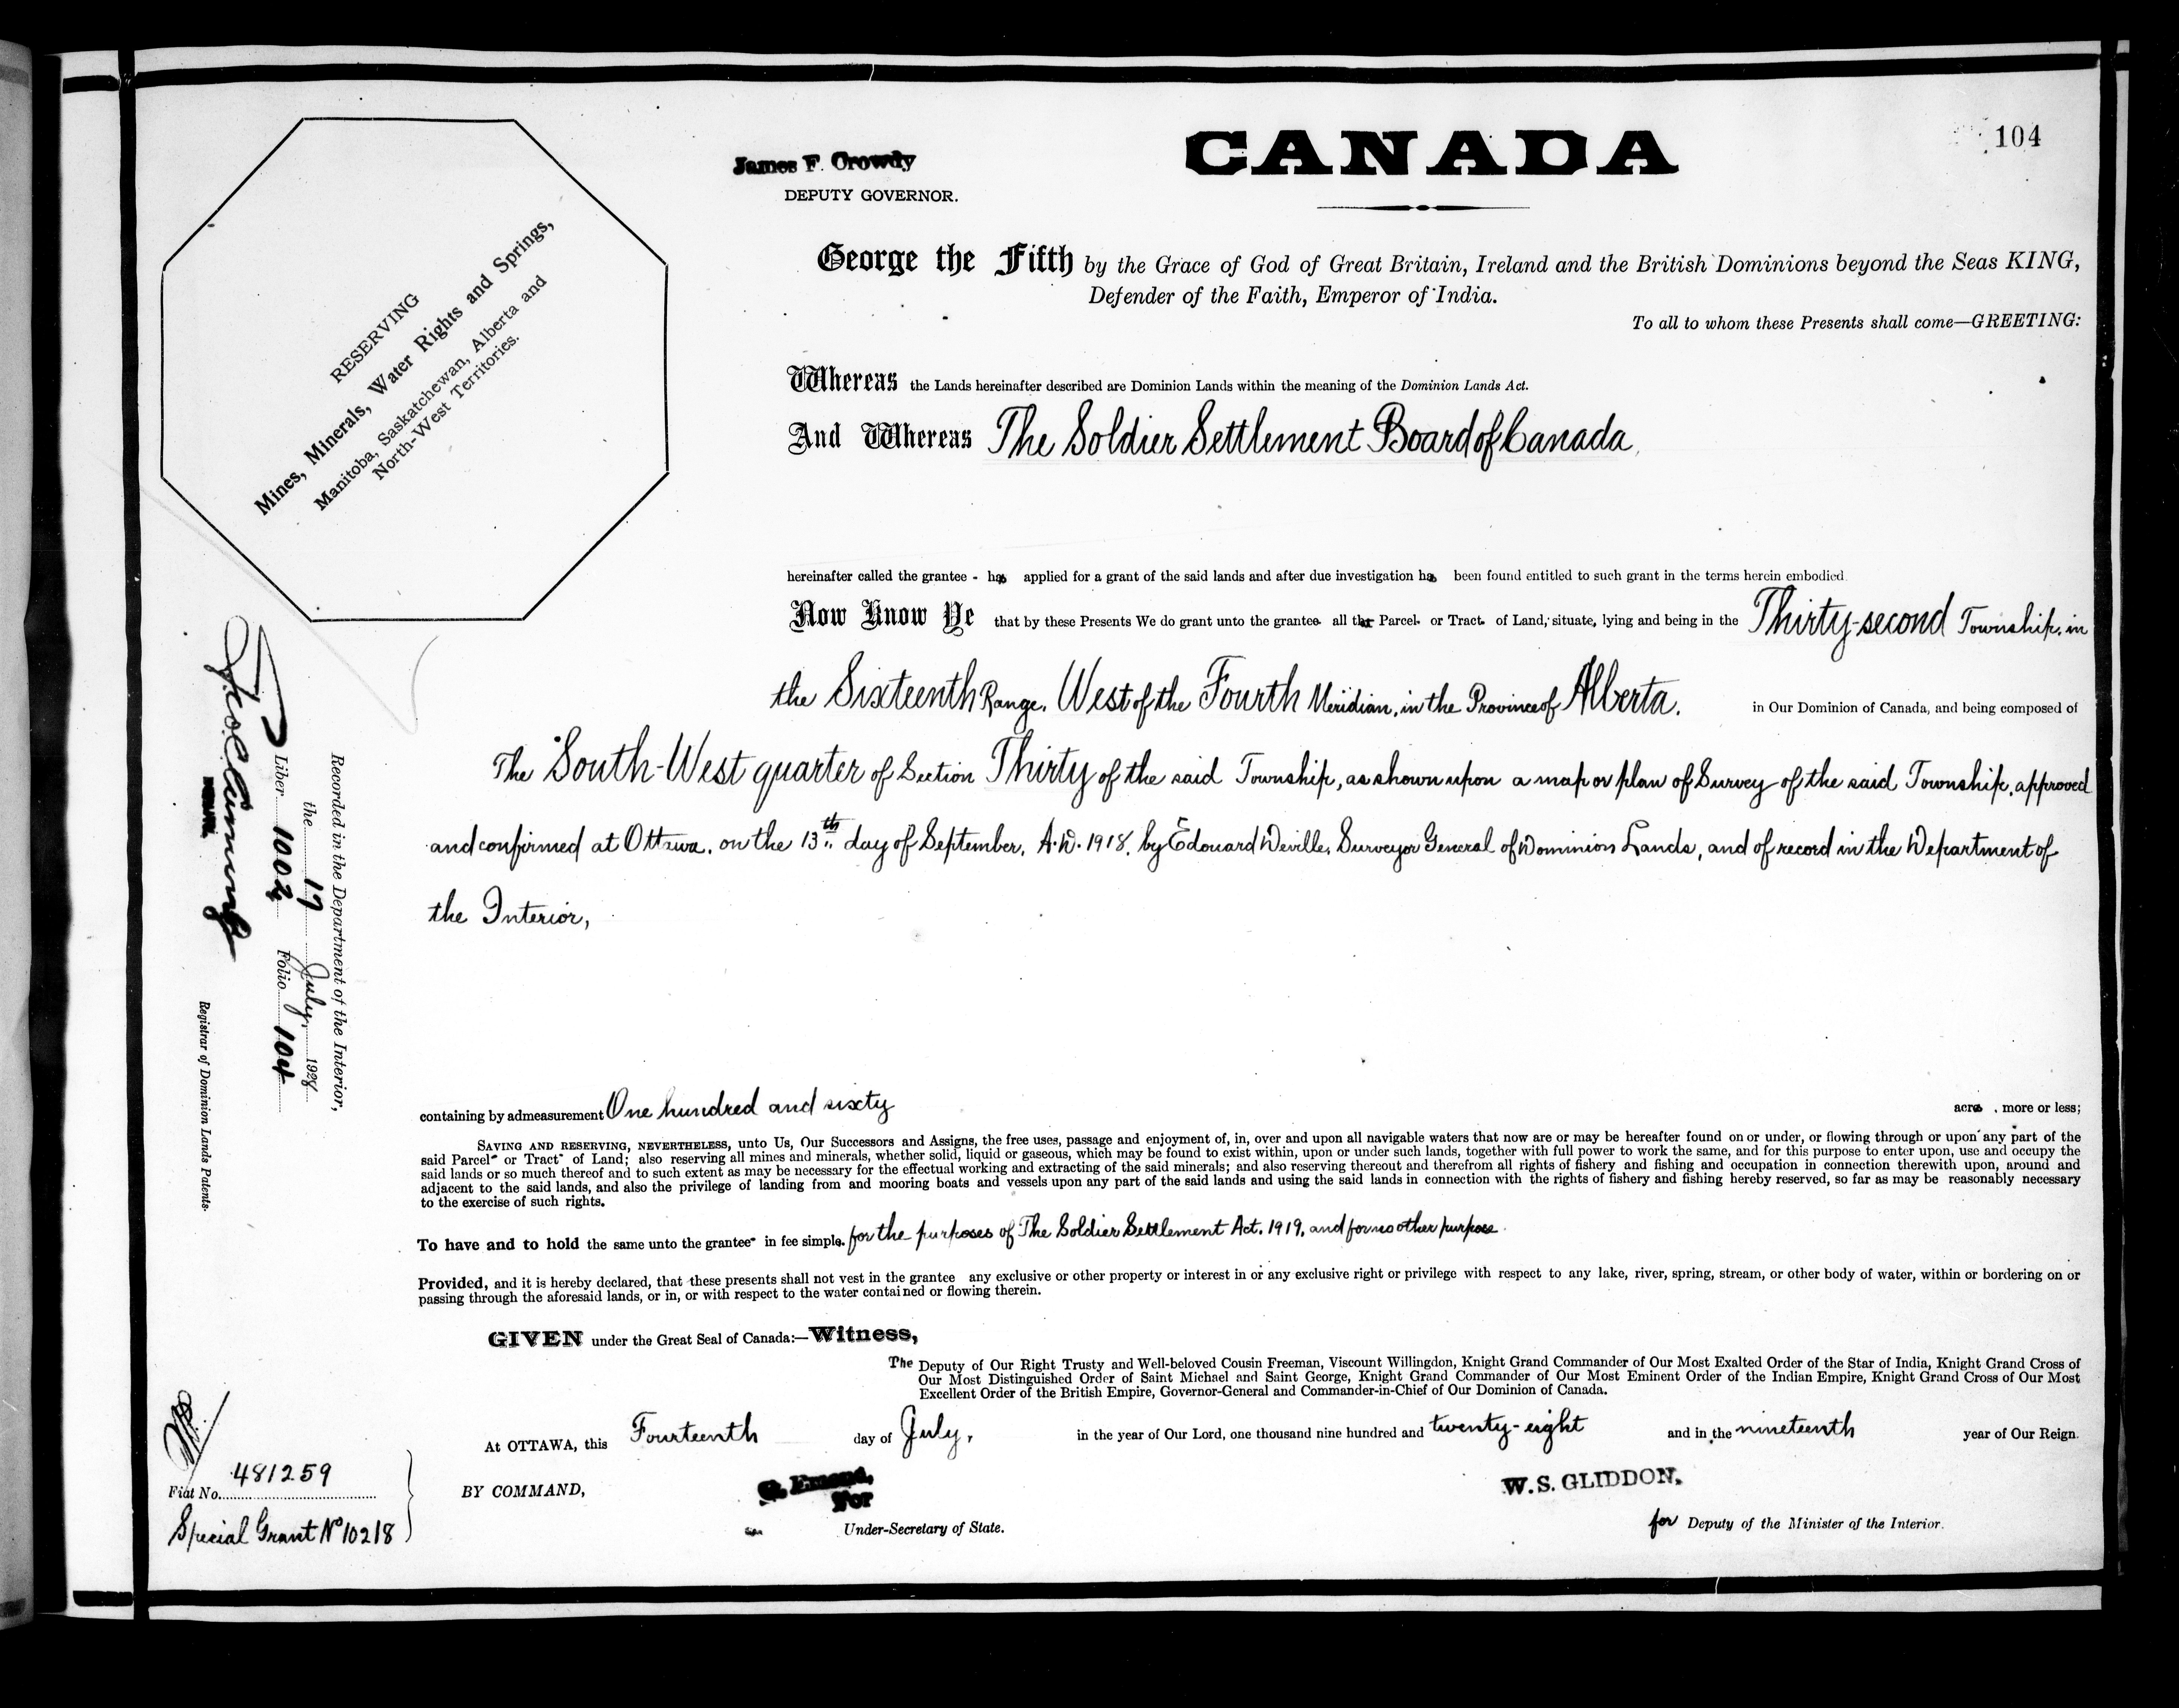 104
CANADA
James F. Crowdy
DEPUTY GOVERNOR.
RESERVING
Mines, Minerals, Water Rights and Springs,
Manitoba, Saskatchewan, Alberta and
North-West Territories.
George the Fifth by the Grace of God of Great Britain, Ireland and the British Dominions beyond the Seas KING,
Defender of the Faith, Emperor of India.
To all to whom these Presents shall come—GREETING:
Whereas the Lands hereinafter described are Dominion Lands within the meaning of the Dominion Lands Act.
And Whereas The Soldier Settlement Board of Canada,
hereinafter called the grantee - has applied for a grant of the said lands and after due investigation has been found entitled to such grant in the terms herein embodied.
Now Know Ye that by these Presents We do grant unto the grantee all that Parcel or Tract of Land, situate, lying and being in the Thirty-second Township, in
the Sixteenth Range, West of the Fourth Meridian, in the Province of Alberta. in Our Dominion of Canada, and being composed of
The South-West quarter of Section Thirty of the said Township, as shown upon a map or plan of Survey of the said Township, approved
and confirmed at Ottawa, on the 13th day of September, A.D. 1918, by Edouard Deville, Surveyor General of Dominion Lands, and of record in the Department of
the Interior,
Recorded in the Department of the Interior,
the 17 July, 1928
Liber 1002 Folio 104
Registrar of Dominion Lands Patents.
containing by admeasurement One hundred and sixty acres, more or less;
SAVING AND RESERVING, NEVERTHELESS, unto Us, Our Successors and Assigns, the free uses, passage and enjoyment of, in, over and upon all navigable waters that now are or may be hereafter found on or under, or flowing through or upon any part of the
said Parcel or Tract of Land; also reserving all mines and minerals, whether solid, liquid or gaseous, which may be found to exist within, upon or under such lands, together with full power to work the same, and for this purpose to enter upon, use and occupy the
said lands or so much thereof and to such extent as may be necessary for the effectual working and extracting of the said minerals; and also reserving thereout and therefrom all rights of fishery and fishing and occupation in connection therewith upon, around and
adjacent to the said lands, and also the privilege of landing from and mooring boats and vessels upon any part of the said lands and using the said lands in connection with the rights of fishery and fishing hereby reserved, so far as may be reasonably necessary
to the exercise of such rights.
To have and to hold the same unto the grantee in fee simple. for the purposes of The Soldier Settlement Act, 1919, and for no other purpose.
Provided, and it is hereby declared, that these presents shall not vest in the grantee any exclusive or other property or interest in or any exclusive right or privilege with respect to any lake, river, spring, stream, or other body of water, within or bordering on or
passing through the aforesaid lands, or in, or with respect to the water contained or flowing therein.
GIVEN under the Great Seal of Canada:—Witness,
The Deputy of Our Right Trusty and Well-beloved Cousin Freeman, Viscount Willingdon, Knight Grand Commander of Our Most Exalted Order of the Star of India, Knight Grand Cross of
Our Most Distinguished Order of Saint Michael and Saint George, Knight Grand Commander of Our Most Eminent Order of the Indian Empire, Knight Grand Cross of Our Most
Excellent Order of the British Empire, Governor-General and Commander-in-Chief of Our Dominion of Canada.
At OTTAWA, this Fourteenth day of July, in the year of Our Lord, one thousand nine hundred and twenty-eight and in the nineteenth year of Our Reign.
Fiat No. 481259
Special Grant No 10218
BY COMMAND,
G. Emond,
For
Under-Secretary of State.
W. S. GLIDDON,
for Deputy of the Minister of the Interior.